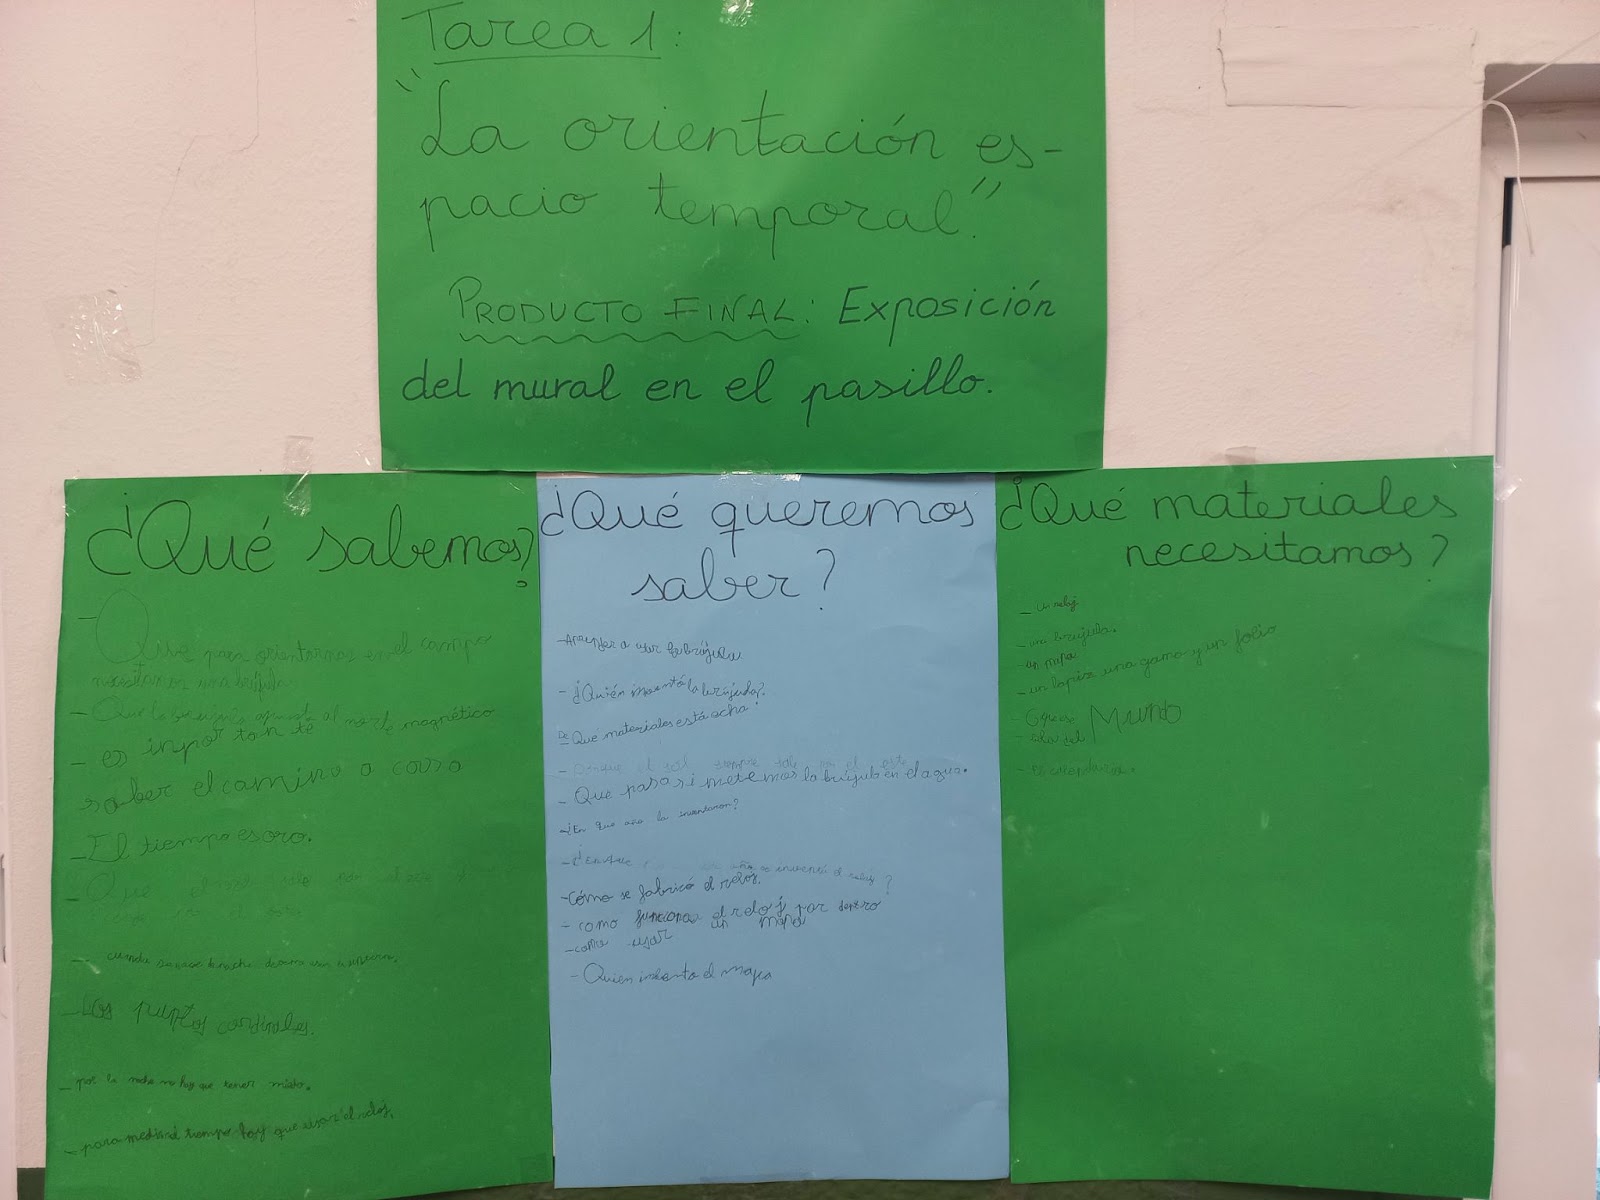 Tarea 1:
"La orientación es-
pacio temporal."
PRODUCTO FINAL: Exposición
del mural en el pasillo.
¿Qué sabemos?
- Que para orientarnos en el campo
necesitamos una brújula
- Que la brújula apunta al norte magnético
- es inportante
saber el camino a cassa
- El tiempo es oro.
- Que el sol sale por
por el
- cuando se hace la noche debemos usar
- Los puntos cardinales.
- por la noche no hay que tener miedo.
- para medir el tiempo hay que usar el reloj.
¿Qué queremos
saber?
- Aprender a usar la brújula
- ¿Quién inventó la brújula?
- De Que materiales está echa?
- Porque el sol siempre sale por el este
- Que pasa si metemos la brújula en el agua.
- ¿En que año la inventaron?
- ¿En que año se inventó el reloj?
- Cómo se fabricó el reloj.
- como funciona el reloj por dentro
- como usar un mapa
- Quien imbento el mapa
¿Qué materiales
necesitamos?
- un reloj
- una brujula.
- un mapa
- un lapiz una goma y un folio
- del Mundo